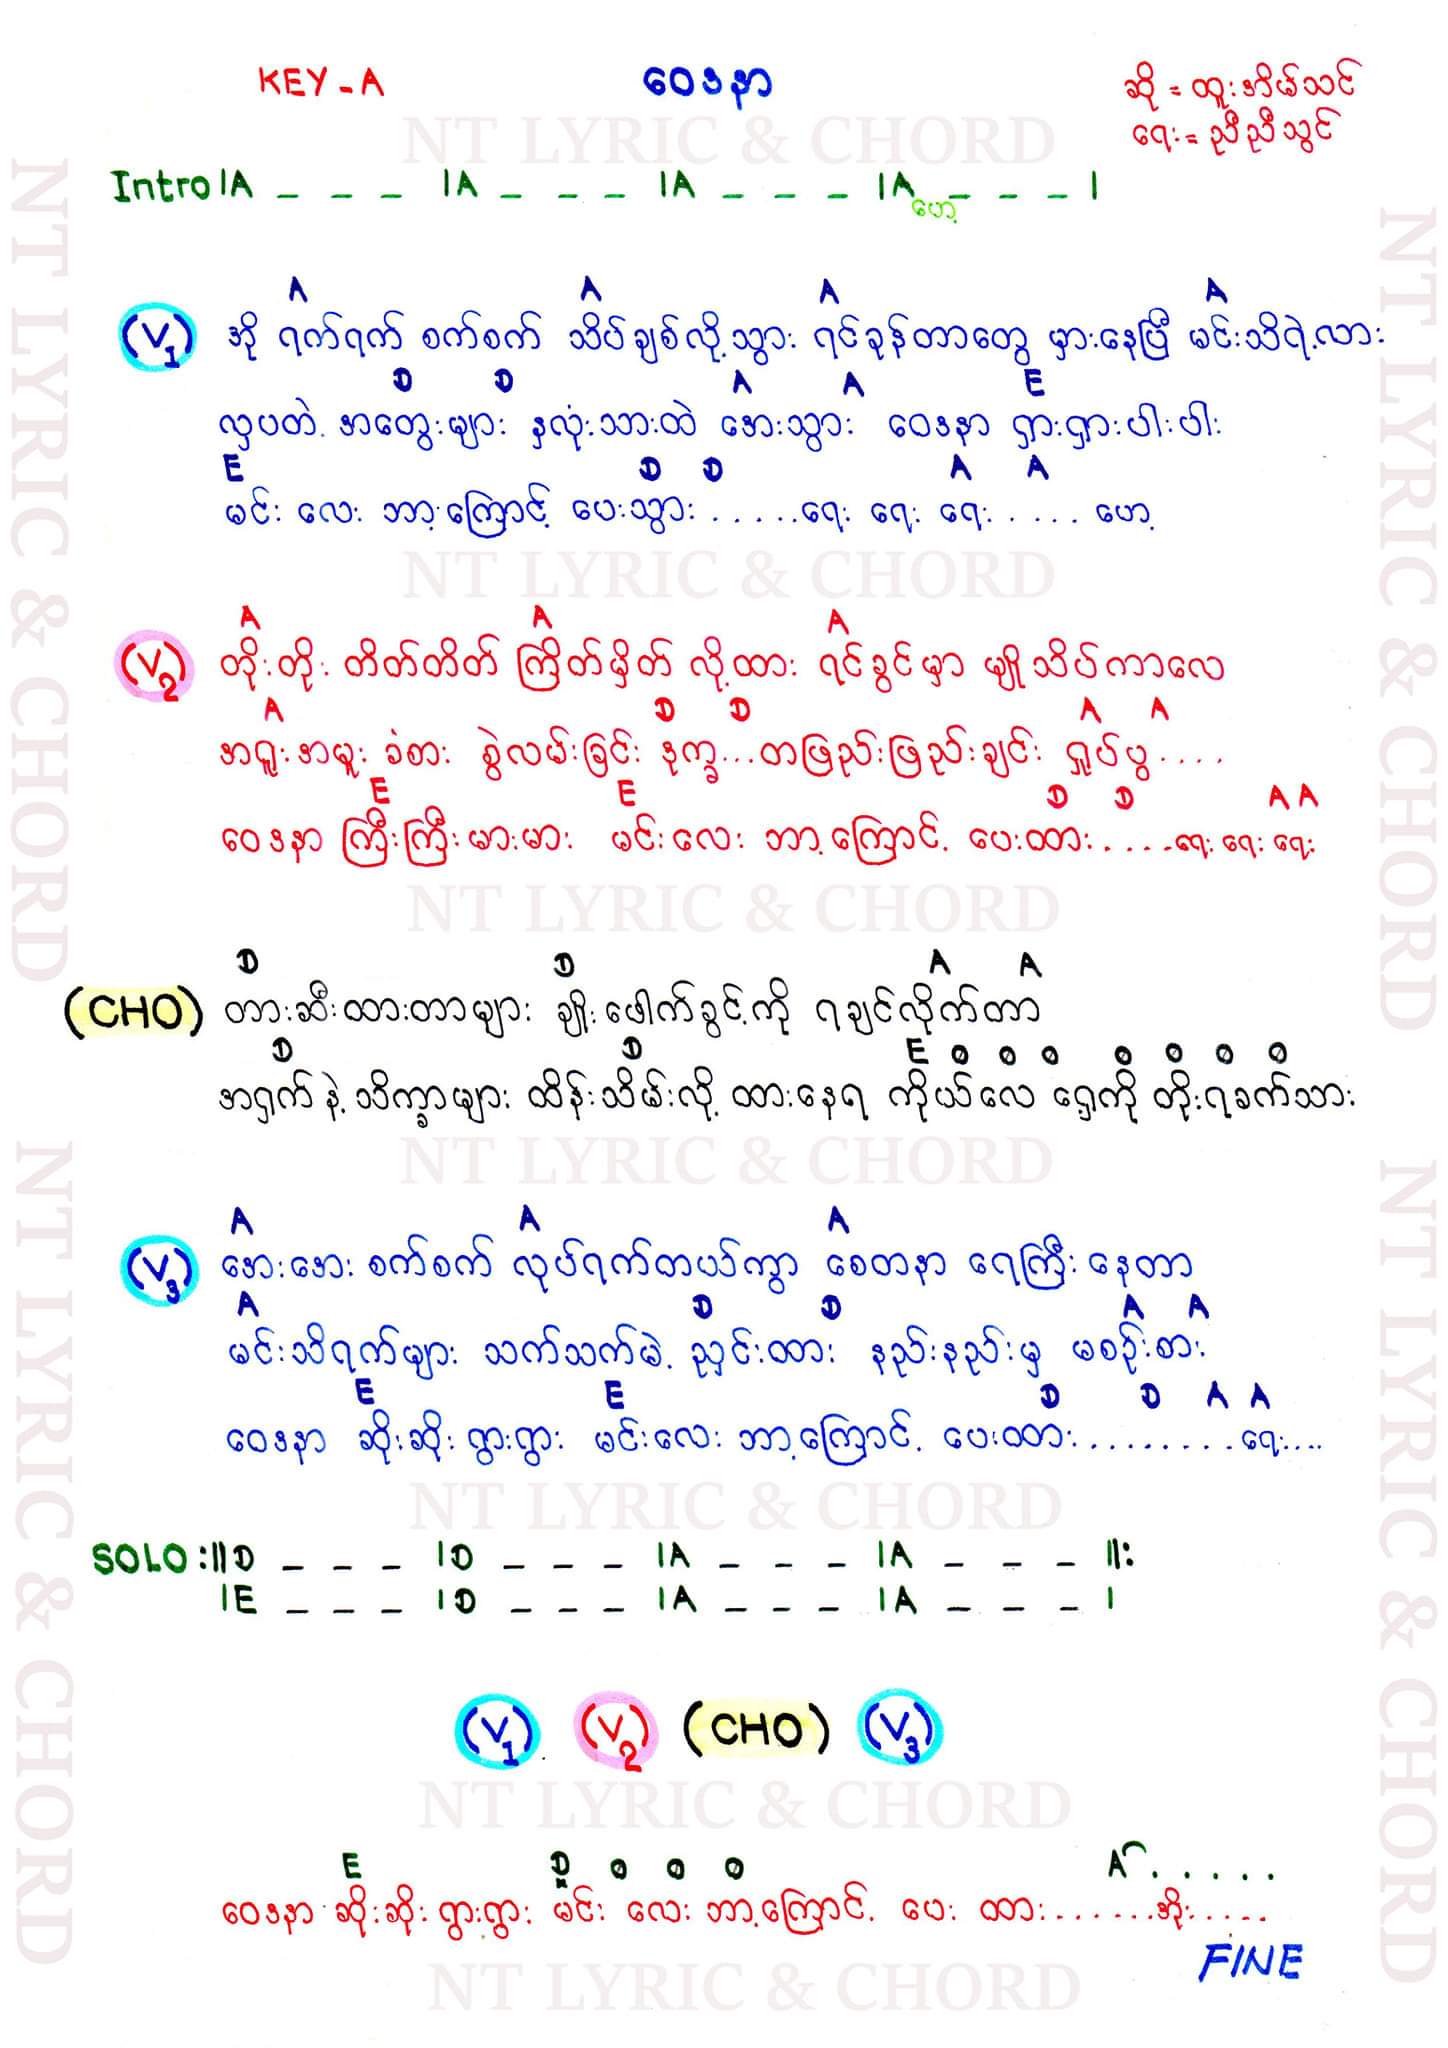 KEY - A
ဝေဒနာ
ဆို = ထူးအိမ်သင်
ရေး = ညီညီသွင်
NT LYRIC & CHORD
Intro |A _ _ _ |A _ _ _ |A _ _ _ |A _ _ _ |
ဟေ့
A A A A
(V1) အို ရက်ရက် စက်စက် သိပ်ချစ်လို့သွား ရင်ခုန်တာတွေ မှားနေပြီ မင်းသိရဲ့လား
D D A A E
လှပတဲ့ အတွေးများ နှလုံးသားထဲ အေးသွား ဝေဒနာ ရှားရှားပါးပါး
E D D A A
မင်း လေး ဘာ့ကြောင့် ပေးသွား......ရေး ရေး ရေး.... ဟေ့
NT LYRIC & CHORD
A A A
(V2) တိုးတိုး တိတ်တိတ် ကြိတ်မှိတ် လို့ထား ရင်ခွင်မှာ မျိုသိပ်ကာလေ
A D D A A
အရူးအမူး ခံစား စွဲလမ်းခြင်း ဒုက္ခ...တဖြည်းဖြည်းချင်း ရှုပ်ပွ....
E E D D A A
ဝေဒနာ ကြီးကြီးမားမား မင်းလေး ဘာ့ကြောင့် ပေးထား.....ရေး ရေး ရေး
NT LYRIC & CHORD
D D A A
(CHO) တားဆီးထားတာများ ချိုးဖေါက်ခွင့်ကို ရချင်လိုက်တာ
D D E o o o o o o o
အရှက် နဲ့ သိက္ခာများ ထိန်းသိမ်းလို့ ထားနေရ ကိုယ်လေ ရှေ့ကို တိုးရခက်သား
NT LYRIC & CHORD
A A A
(V3) အေးအေး စက်စက် လုပ်ရက်တယ်ကွာ စေတနာ ရေကြီး နေတာ
A D D A A
မင်းသိရက်များ သက်သက်မဲ့ ညှင်းထား နည်းနည်းမှ မစဉ်းစား
E E D D A A
ဝေဒနာ ဆိုးဆိုး ရွားရွား မင်းလေး ဘာ့ကြောင့် ပေးထား.........ရေး....
NT LYRIC & CHORD
SOLO :||D _ _ _ |D _ _ _ |A _ _ _ |A _ _ _ ||:
|E _ _ _ |D _ _ _ |A _ _ _ |A _ _ _ |
(V1) (V2) (CHO) (V3)
NT LYRIC & CHORD
E D o o o A.....
ဝေဒနာ ဆိုးဆိုး ရွားရွား မင်း လေး ဘာ့ကြောင့် ပေး ထား.......အိုး.....
FINE
NT LYRIC & CHORD
NT LYRIC & CHORD
NT LYRIC & CHORD
NT LYRIC & CHORD
NT LYRIC & CHORD